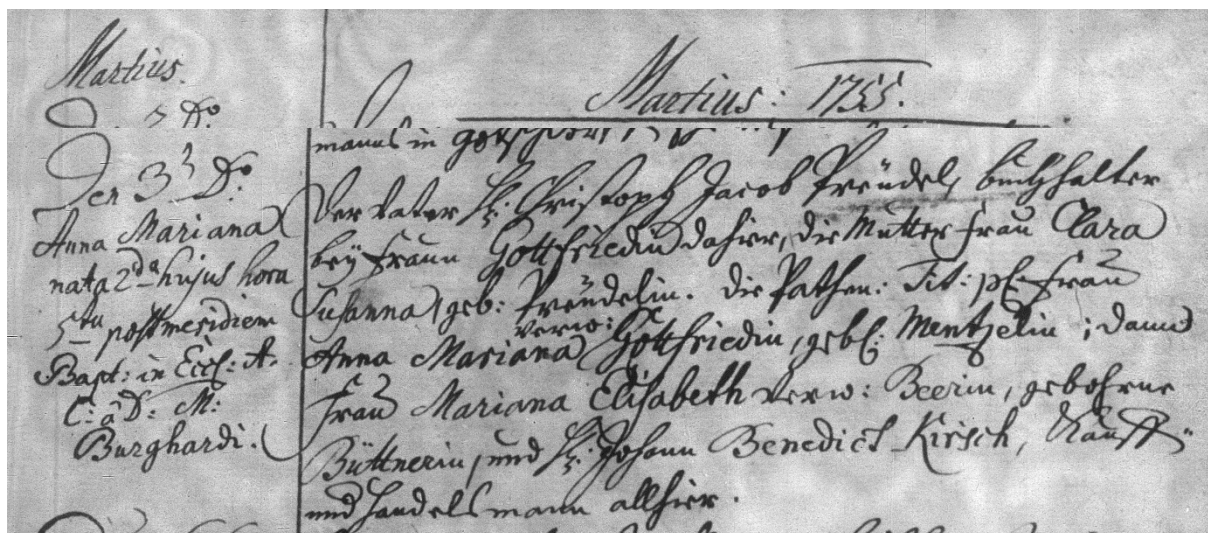 Martius.
Martius: 1755.
Dº
manns in
Den 3 Dº.
Anna Mariana
nata 2da hujus hora
5ta postmeridiem
Bapt: in Eccl: A.
C: a D: M:
Burghardi.
Der Vater H: Christoph Jacob Preüdel, Buchhalter
bey Fraun Gottfriedin dahier, die Mutter Frau Clara
Susanna, geb: Preüdelin. Die Pathen: Tit: pl: Frau
Anna Mariana verw: Gottfriedin, gebl: Mentzelin; dann
Frau Mariana Elisabeth verw: Beerin, gebohrne
Büttnerin, und H: Johann Benedict Kirsch, Kauff-
und Handelsmann allhier.